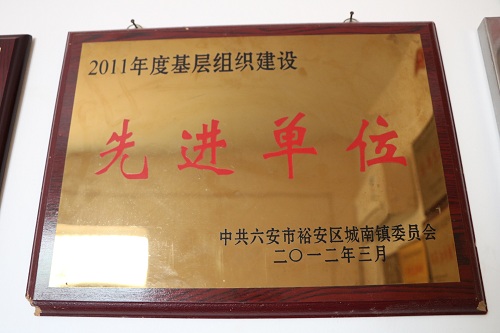 2011年度基层组织建设
先进单位
中共六安市裕安区城南镇委员会
二〇一二年三月